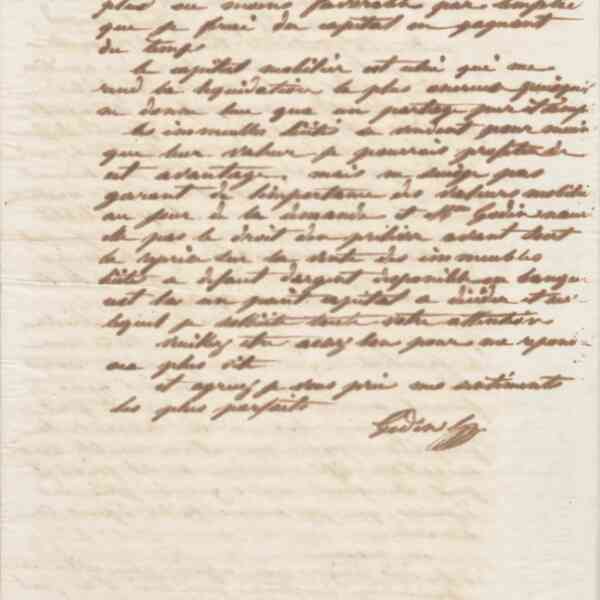 plus ou moins favorable par
que je ferai du capital en gagnant
du temps
le capital mobilier est celui qui me
rend la liquidation la plus
ne donne lieu que un partage
les immeubles licités se vendent pour moins
que leur valeur je pourrais profiter de
cet avantage. mais ne suis pas
garant de l'importance des valeurs mobili
au jour de la demande et Mme Godin
pas le droit d'en prélever avant tout
la reprise sur la vente des immeubles
licités a défaut d'argent disponible en
est là un point capital a décider et sur
lequel je sollicite toute votre attention
Veuillez être assez bon pour me répon
le plus vite
et agréez je vous prie mes sentiments
les plus parfaits
Godin